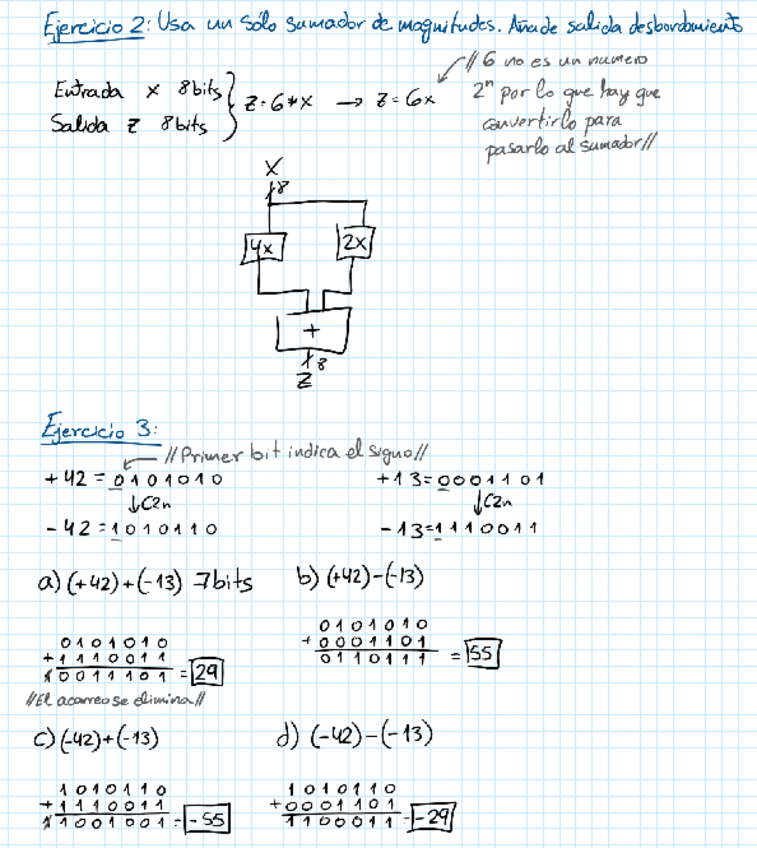 Ejercicio 2: Usa un sólo sumador de magnitudes. Añade salida desbordamiento
Entrada x 8bits } z=6*x → z=6x
Salida z 8bits
//6 no es un numero
2ⁿ por lo que hay que
convertirlo para
pasarlo al sumador//
X
8
4x
2x
+
8
Z
Ejercicio 3:
//Primer bit indica el signo//
+42=0101010
↓C2n
-42=1010110
+13=0001101
↓C2n
-13=1110011
a) (+42)+(-13) 7bits
0101010
+1110011
10011101=29
//El acarreo se elimina//
b) (+42)-(-13)
0101010
+0001101
0110111 =55
c) (-42)+(-13)
1010110
+1110011
11001001=-55
d) (-42)-(-13)
1010110
+0001101
1100011=-29